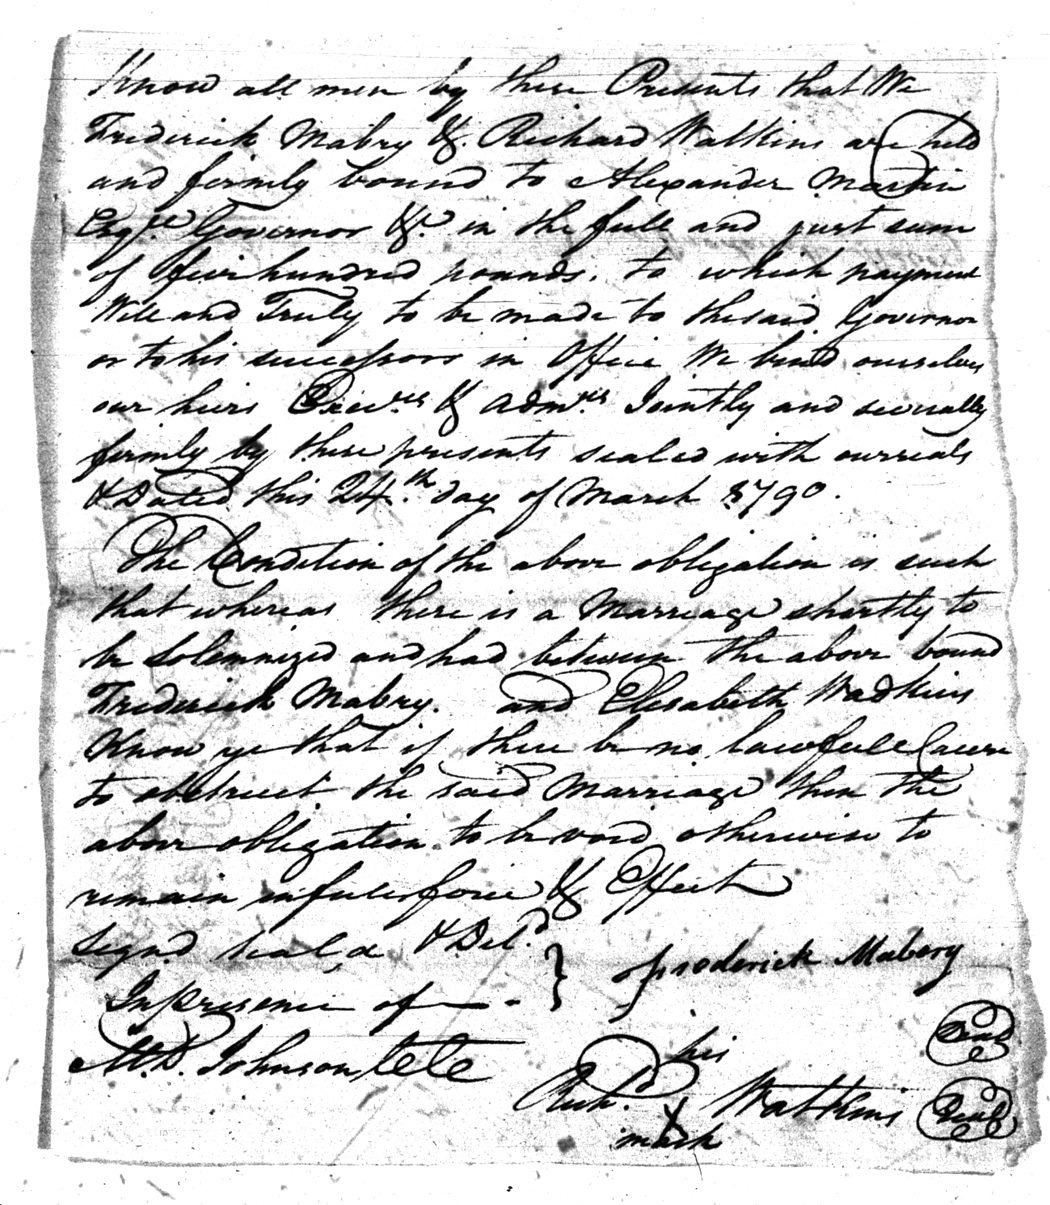 Know all men by these Presents that We
Frederick Mabry & Richard Watkins are held
and firmly bound to Alexander Martin
Esqr. Governor &c in the full and just sum
of five hundred pounds. to which payment
Well and Truly to be made to the said Governor
or to his successors in Office We bind ourselves
our heirs Execrs & Admrs Jointly and severally
firmly by these presents sealed with our seals
& Dated this 24th day of March 1790.
The Condition of the above obligation is such
that whereas there is a Marriage shortly to
be Solemnized and had between the above bound
Frederick Mabry. and Elisabeth Wadkins
Know ye that if there be no lawfull Cause
to obstruct the said Marriage then the
above obligation to be void otherwise to
remain in full force & Effect
Signd seald & Deld
In presence of
frederick Mabery
Seal
A.D. Johnson
his
Richd. X Watkins Seal
mark